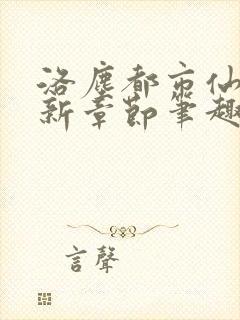 洛塵都市仙
新章節筆趣
言聲